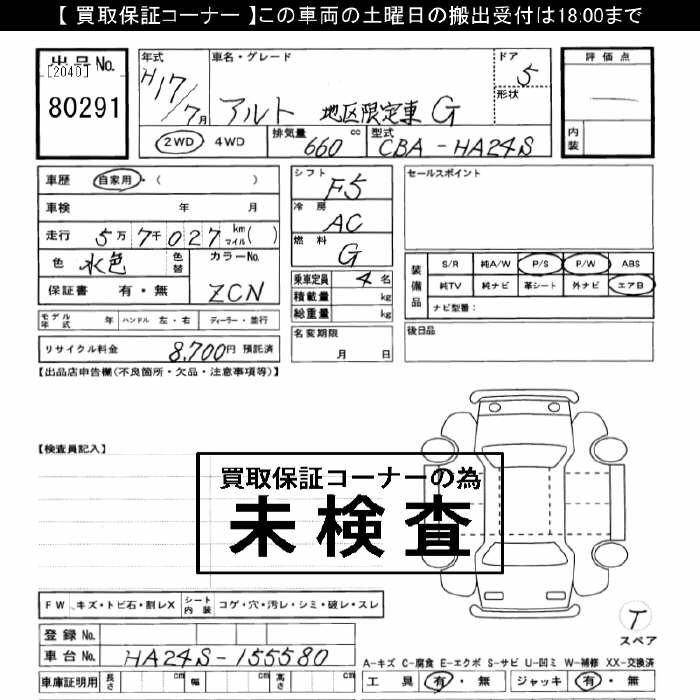 【 買取保証コーナー 】この車両の土曜日の搬出受付は18:00まで
出品No.
[2040]
80291
年式
H17/7月
車名・グレード
アルト 地区限定車 G
ドア
5
形状
評価点
内装
2WD 4WD
排気量 660 cc
型式 CBA-HA24S
車歴 自家用・( )
車検 年 月
走行 5万7千027 km マイル( )
色 水色 色替
カラーNo.
ZCN
保証書 有・無
モデル年式 年 ハンドル 左・右 ディーラー・並行
リサイクル料金 8,700円 預託済
シフト F5
冷房 AC
燃料 G
乗車定員 4名
積載量 kg
総重量 kg
名変期限
月 日
セールスポイント
装備品
S/R 純A/W P/S P/W ABS
純TV 純ナビ 革シート 外ナビ エアB
ナビ型番:
後日品
【出品店申告欄(不良箇所・欠品・注意事項等)】
【検査員記入】
買取保証コーナーの為
未検査
FW キズ・トビ石・割レX シート内装 コゲ・穴・汚レ・シミ・破レ・スレ
登録No.
車台No. HA24S-155580
車庫証明用 長さ cm 幅 cm 高さ cm
T
スペア
A-キズ C-腐食 E-エクボ S-サビ U-凹ミ W-補修 XX-交換済
工具 有・無 ジャッキ 有・無